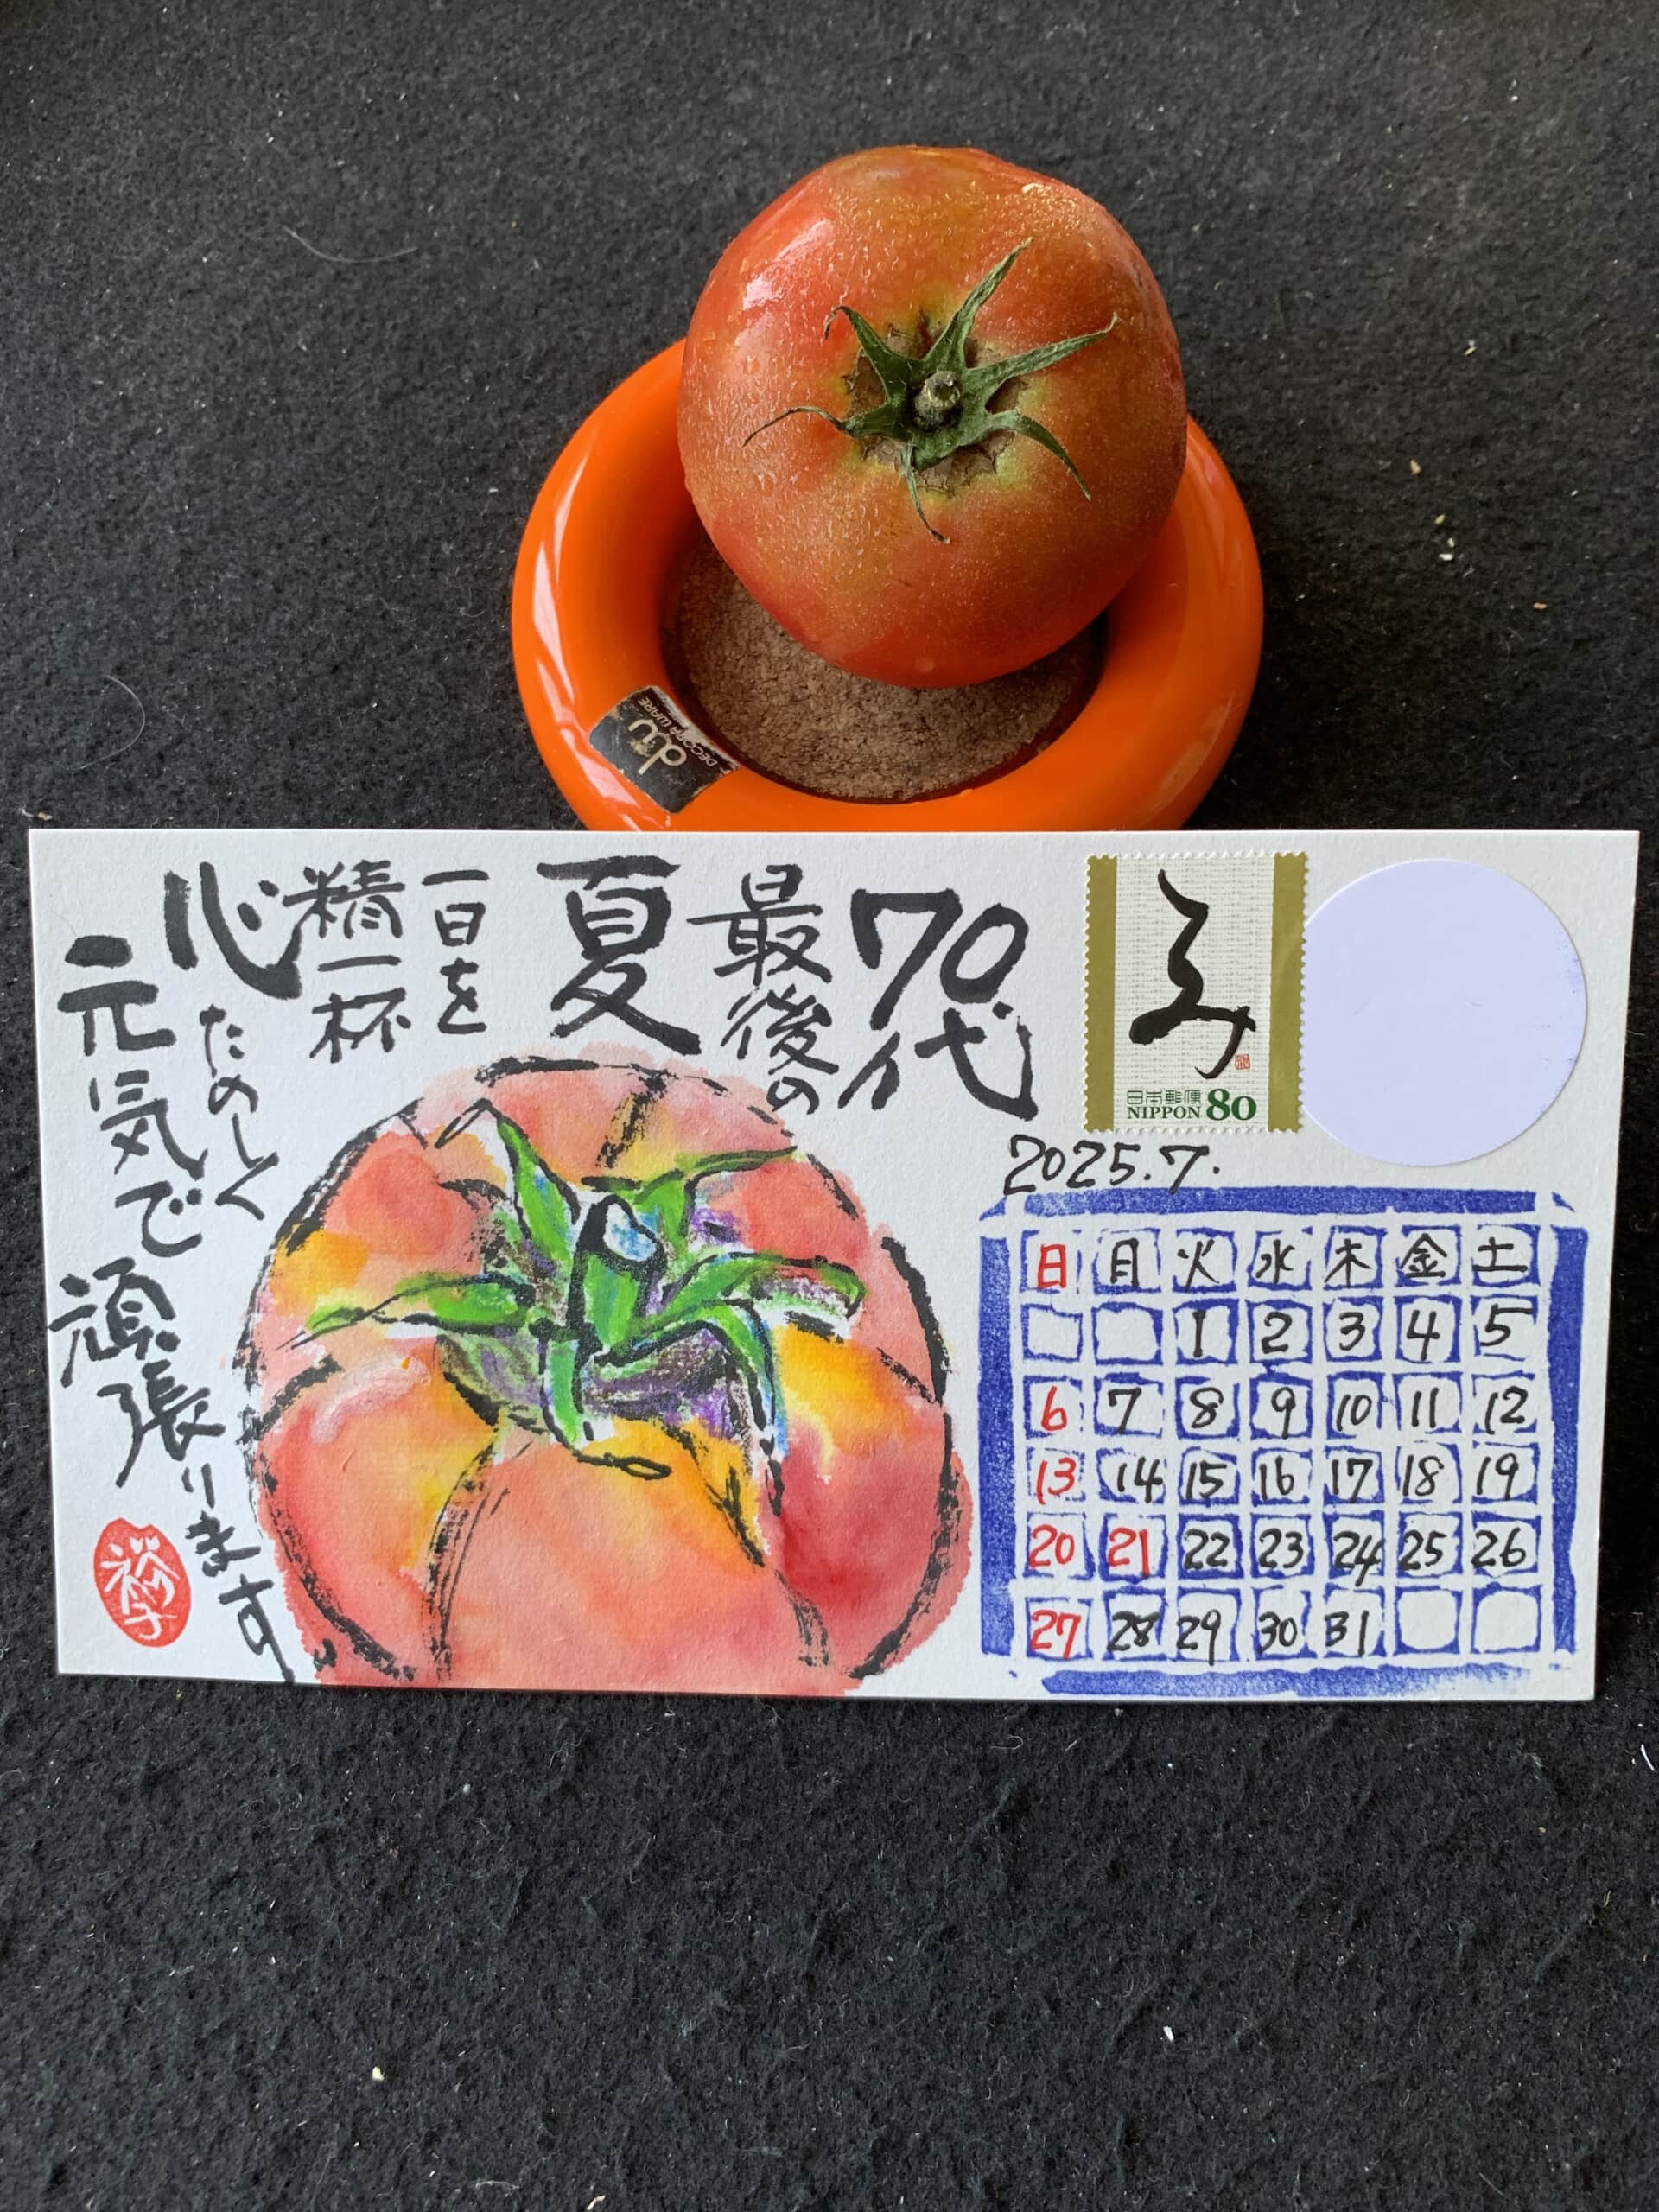 70代
最後の
夏
一日を
精一杯
心たのしく
元気で
頑張ります
裕子
み
日本郵便
NIPPON 80
2025.7.
日 月 火 水 木 金 土
1 2 3 4 5
6 7 8 9 10 11 12
13 14 15 16 17 18 19
20 21 22 23 24 25 26
27 28 29 30 31
dw
DECOLA WARE